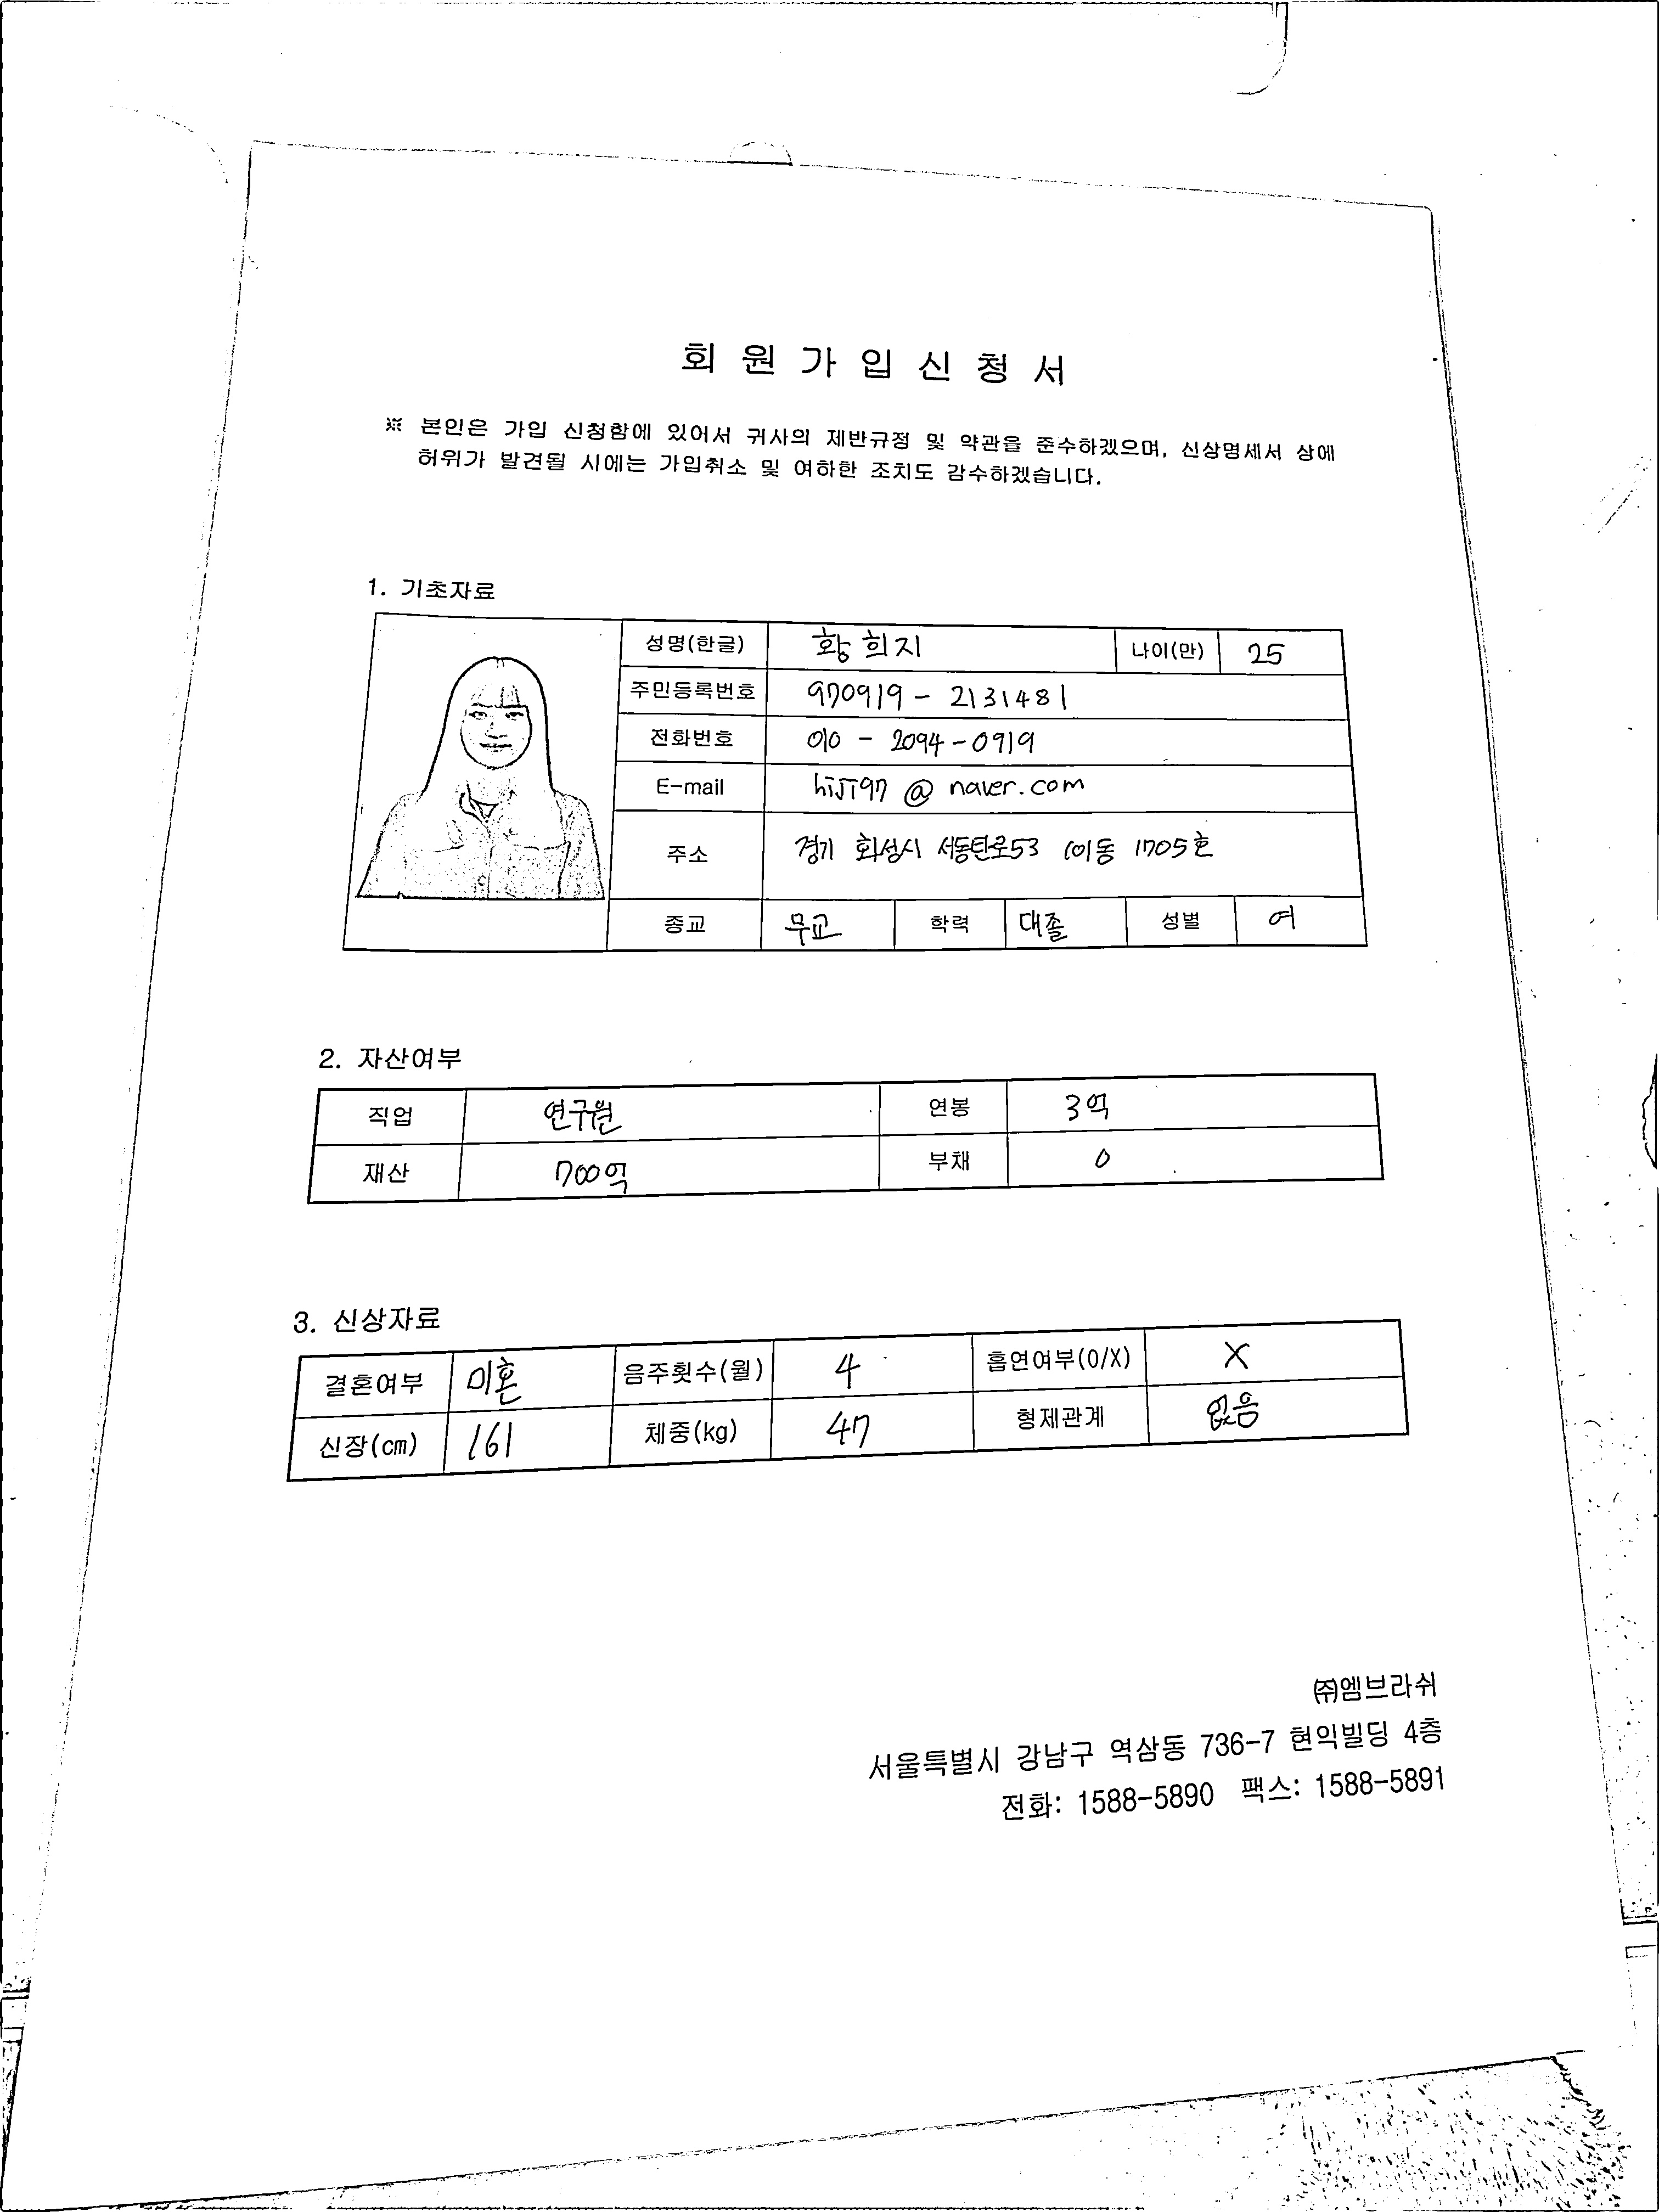 회 원 가 입 신 청 서
※ 본인은 가입 신청함에 있어서 귀사의 제반규정 및 약관을 준수하겠으며, 신상명세서 상에
허위가 발견될 시에는 가입취소 및 여하한 조치도 감수하겠습니다.
1. 기초자료
성명(한글) 황희지 나이(만) 25
주민등록번호 970919 - 2131481
전화번호 010 - 2094 - 0919
E-mail hiji97 @ naver.com
주소 경기 화성시 서동탄로53 101동 1705호
종교 무교 학력 대졸 성별 여
2. 자산여부
직업 연구원 연봉 3억
재산 700억 부채 0
3. 신상자료
결혼여부 미혼 음주횟수(월) 4 흡연여부(O/X) X
신장(cm) 161 체중(kg) 47 형제관계 없음
㈜엠브라쉬
서울특별시 강남구 역삼동 736-7 현익빌딩 4층
전화: 1588-5890 팩스: 1588-5891